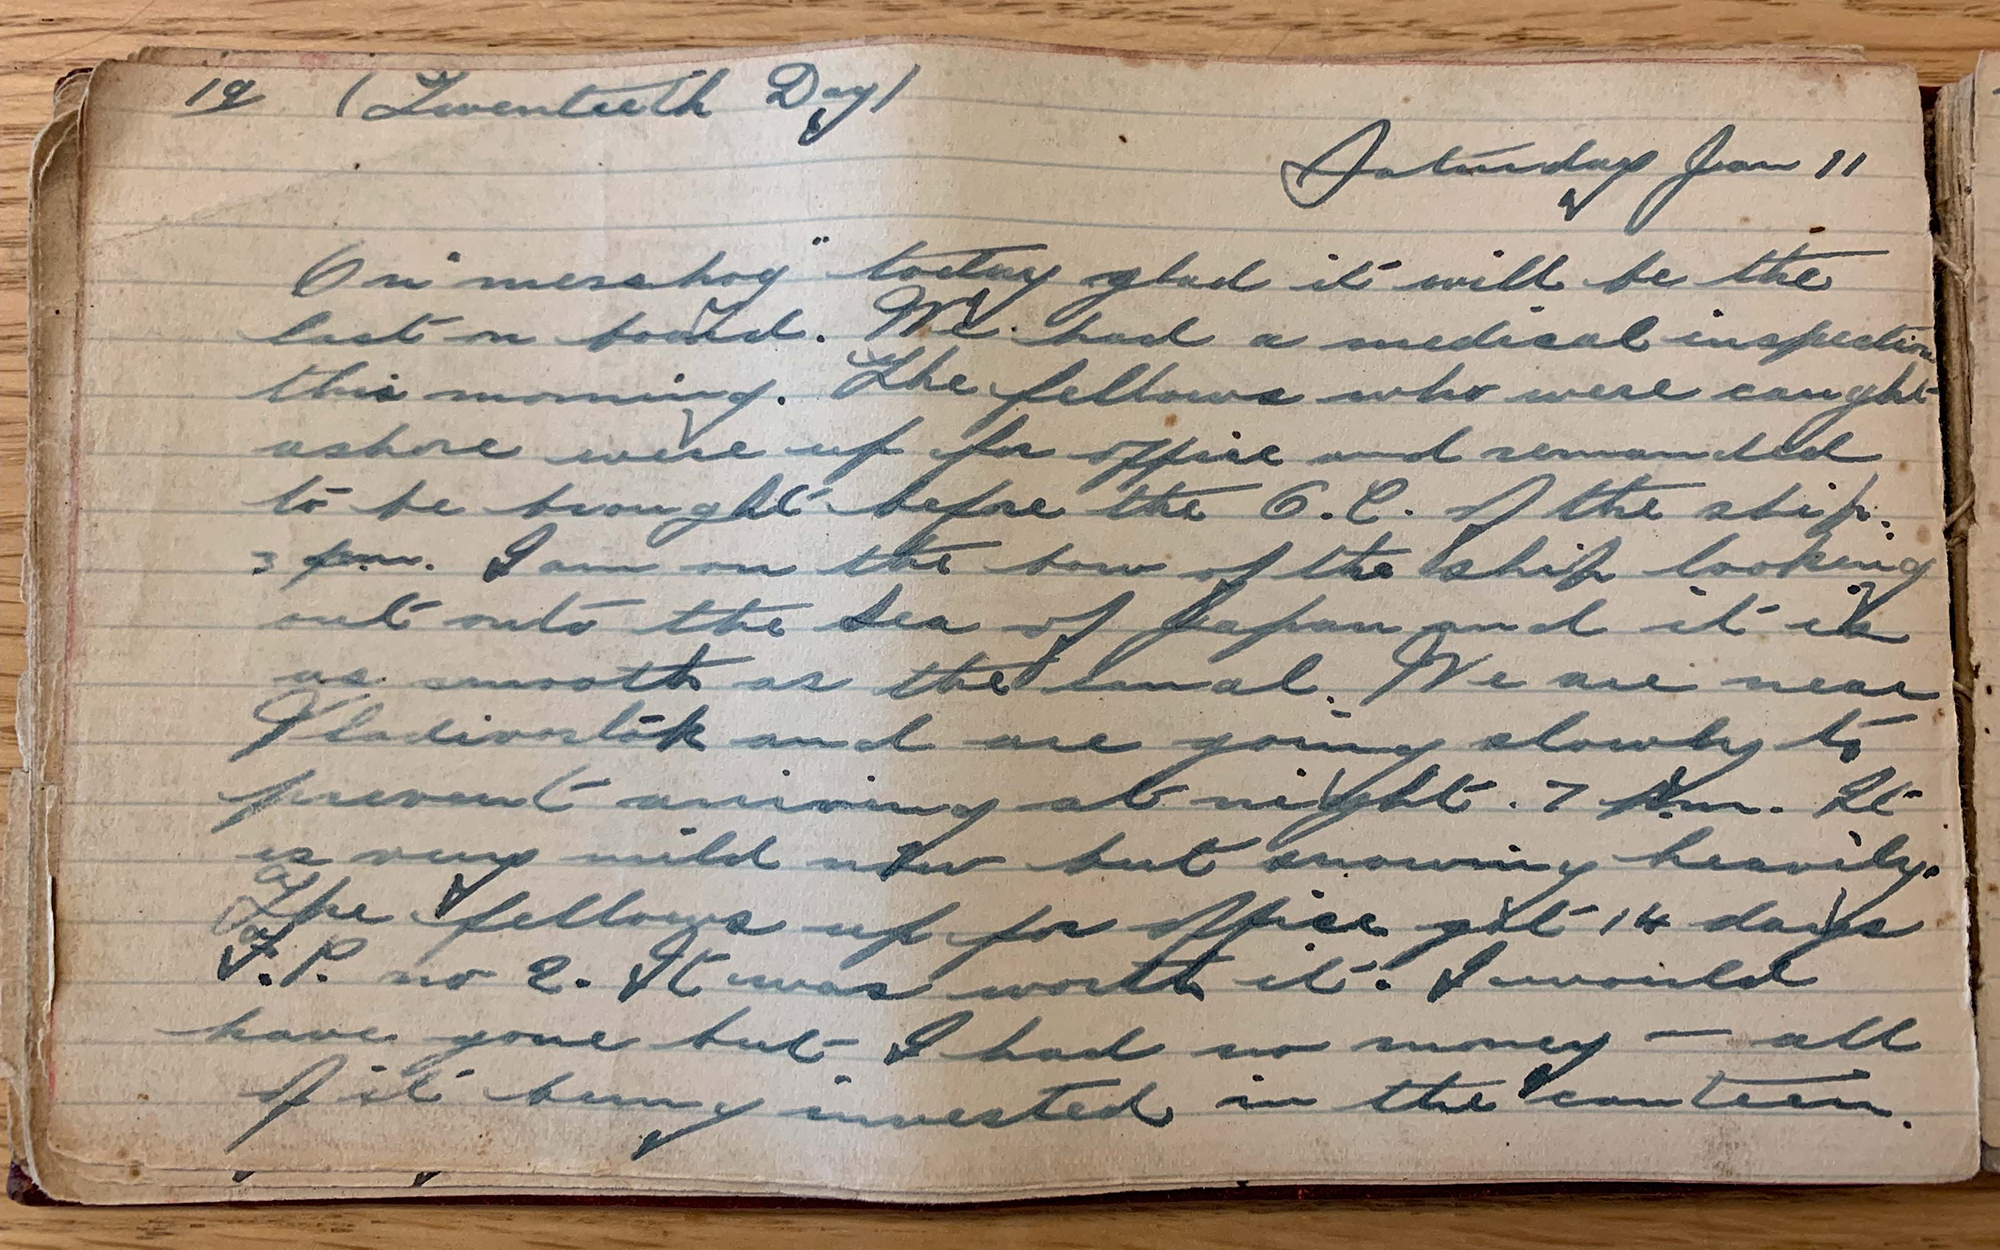 19 (Twentieth Day)
Saturday Jan 11
On "messhog" today glad it will be the
last on board. We had a medical inspection
this morning. The fellows who were caught
ashore were up for office and remanded
to be brought before the O.C. of the ship.
3 p.m. I am on the bow of the ship looking
out onto the Sea of Japan and it is
as smooth as the canal. We are near
Vladivostok and are going slowly to
prevent arriving at night. 7 p.m. It
is very mild now but snowing heavily.
The fellows up for office got 14 days
F.P. no 2. It was worth it. I would
have gone but I had no money — all
of it being invested in the canteen.